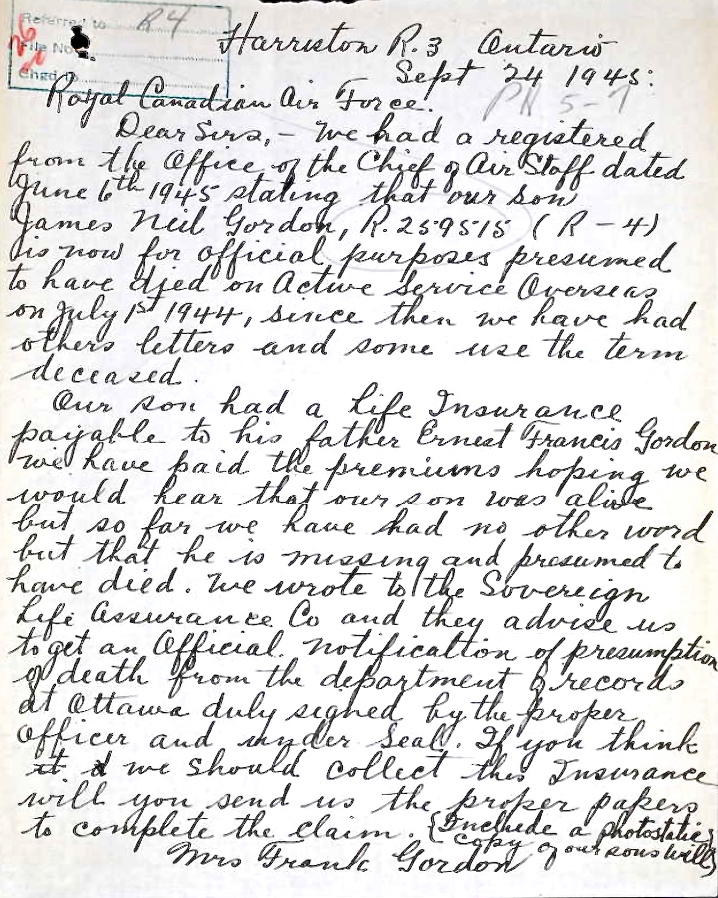 Referred to R4
File No.
Chgd to
Harriston R.3 Ontario
Sept 24 1945:
Royal Canadian Air Force.
Dear Sirs, - We had a registered
from the Office of the Chief of Air Staff dated
June 6th 1945 stating that our son
James Neil Gordon, R.259515 (R-4)
is now for official purposes presumed
to have died on Active Service Overseas
on July 1st 1944, since then we have had
others letters and some use the term
deceased.
Our son had a Life Insurance
payable to his father Ernest Francis Gordon
we have paid the premiums hoping we
would hear that our son was alive
but so far we have had no other word
but that he is missing and presumed to
have died. We wrote to the Sovereign
Life Assurance Co and they advise us
to get an Official. notification of presumption
of death from the department of records
at Ottawa duly signed by the proper
Officer and under Seal. If you think
it we should collect this Insurance
will you send us the proper papers
to complete the claim. {Include a photostatic
copy of our sons will}
Mrs Frank Gordon